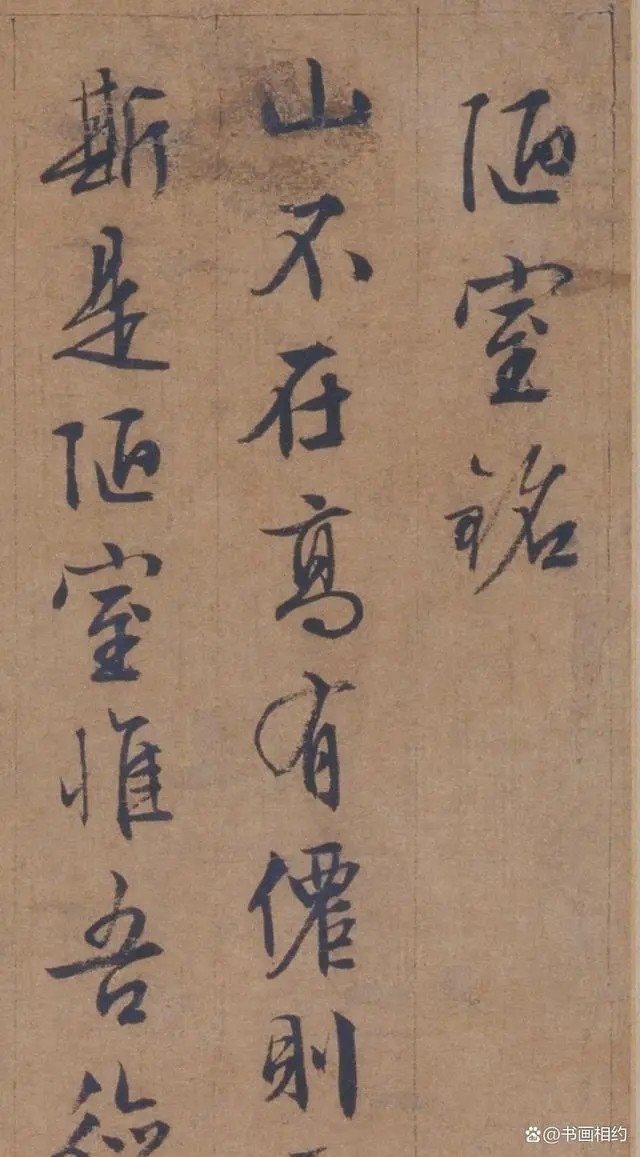 陋室銘
山不在高有僊則
斯是陋室惟吾德
@书画相约